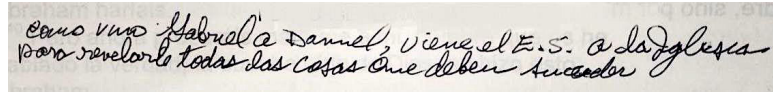 como vino Gabriel a Daniel, viene el E.S. a la Iglesia
para revelarle todas las cosas que deben suceder